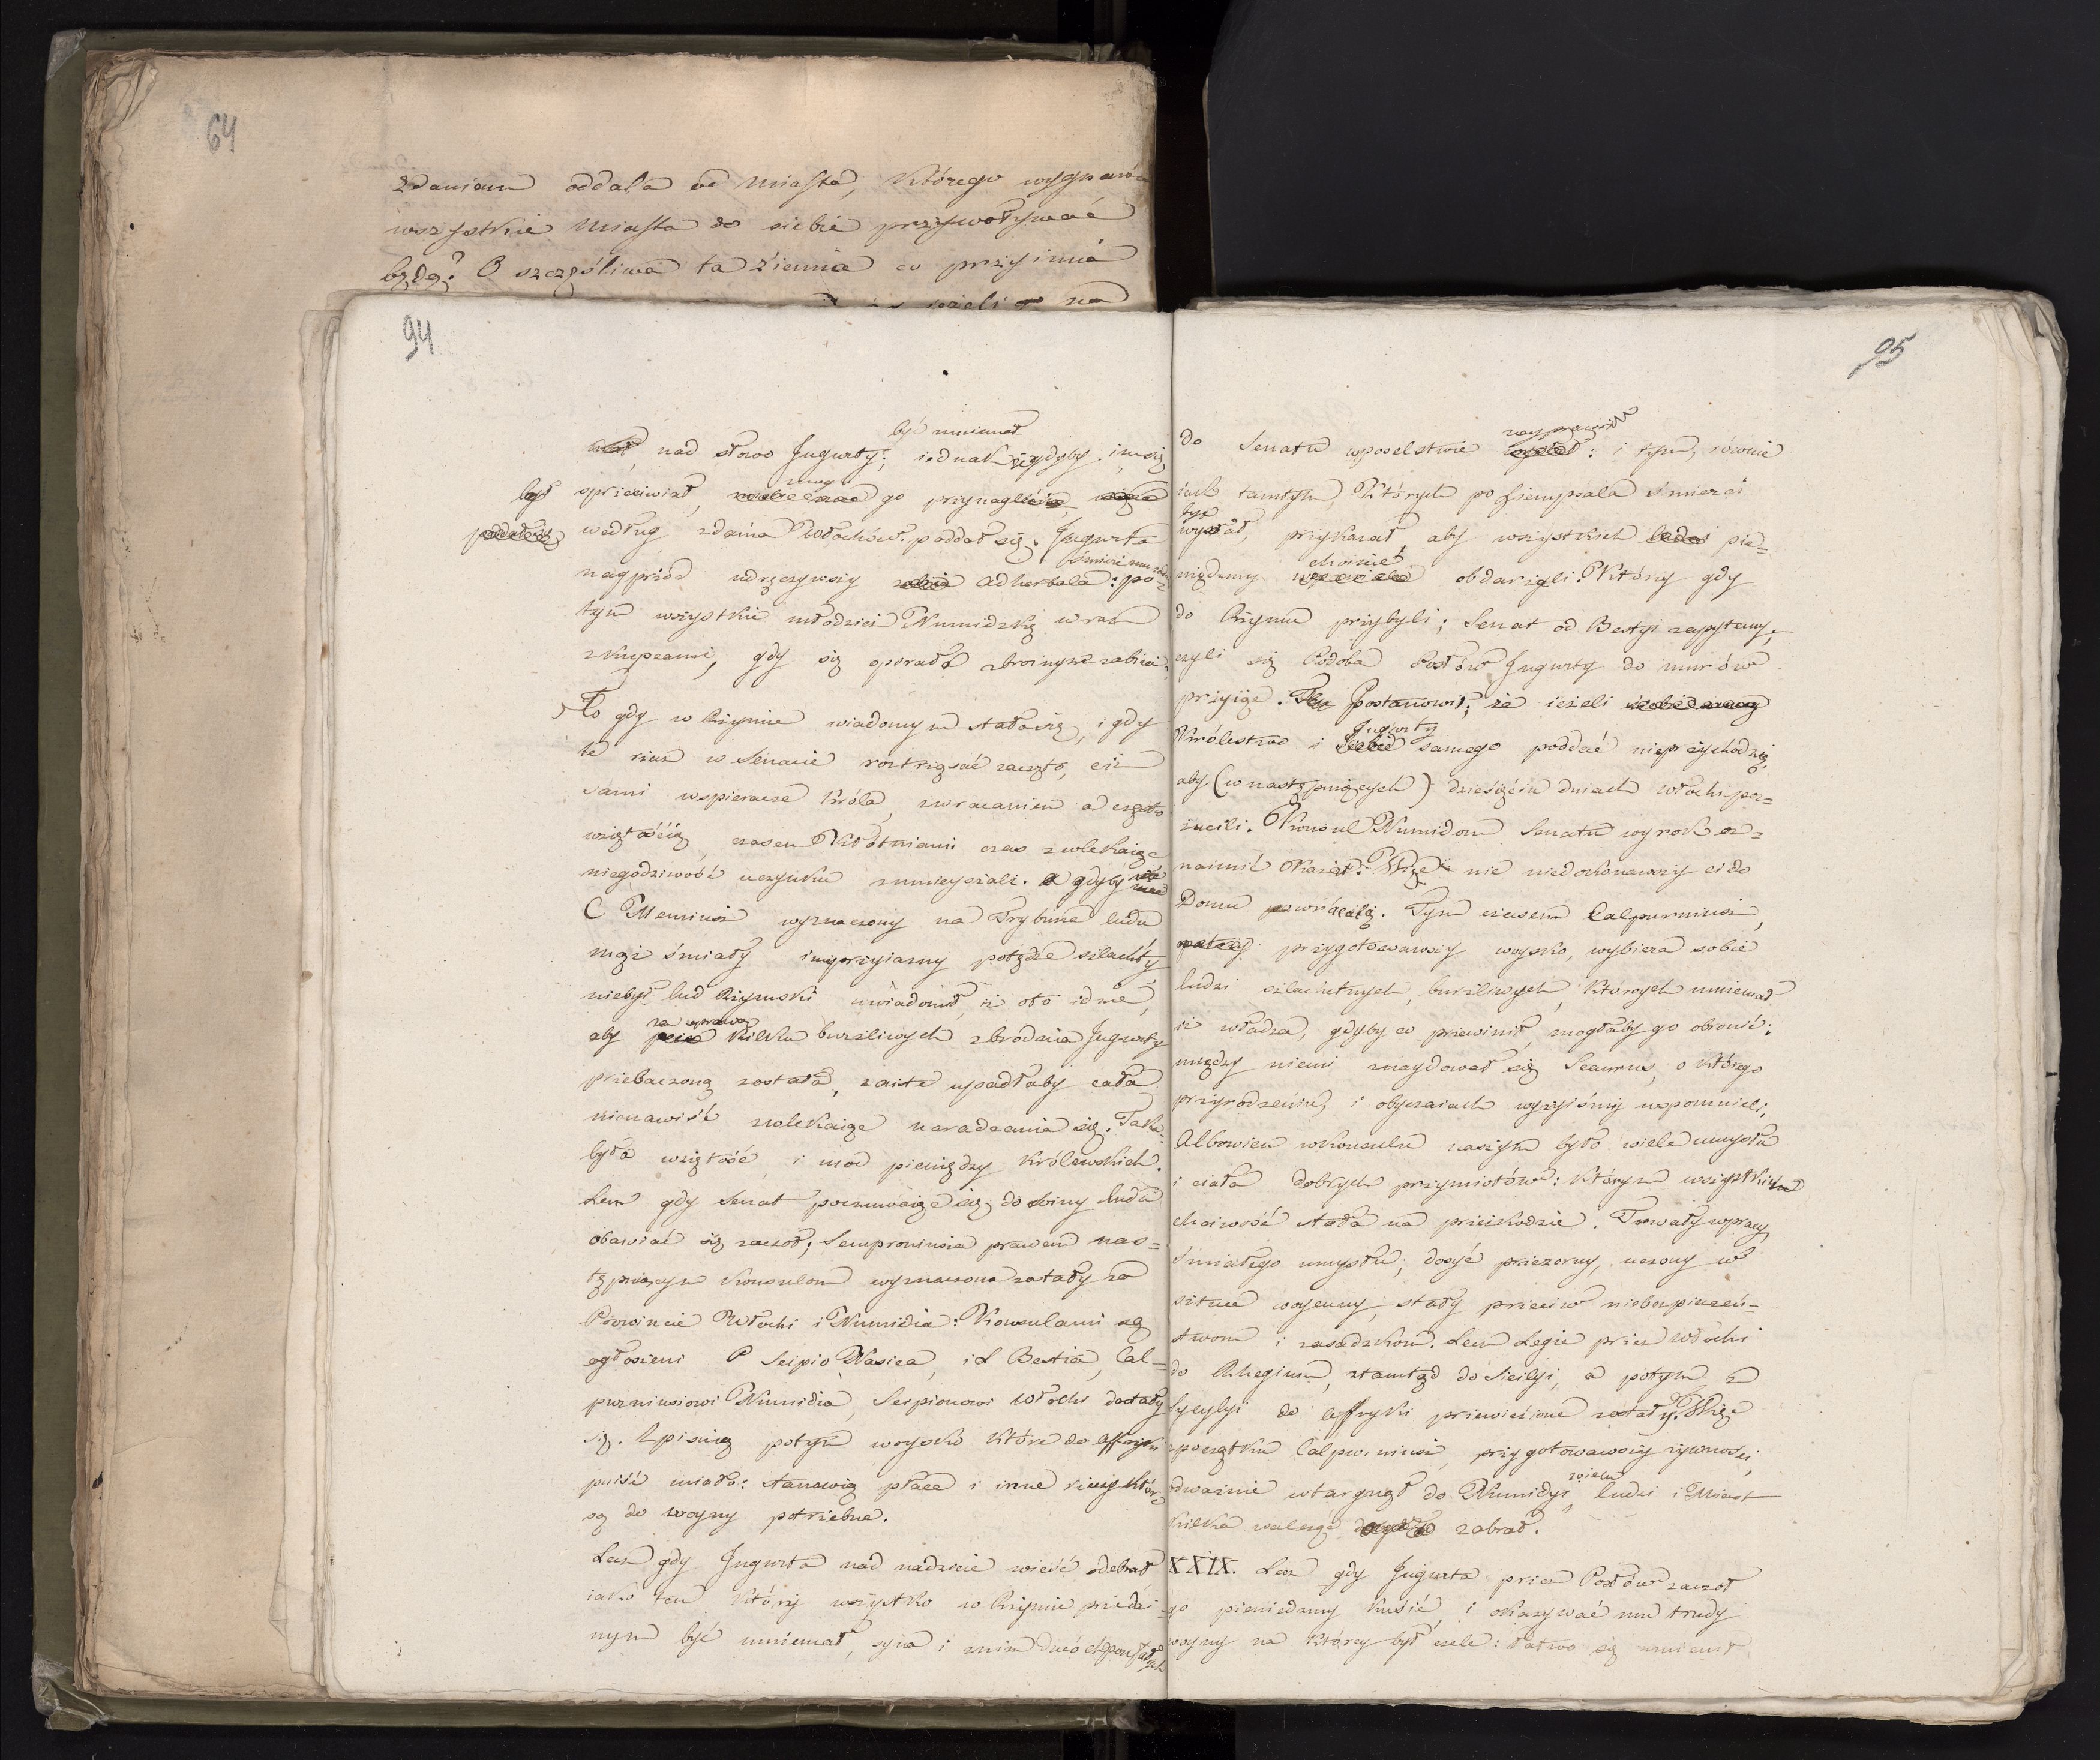 64
zdaniem oddala od Miasta, którego wygnańca
wszystkie Miasta do siebie przywoływać
będą? O szczęśliwa ta ziemia co przyimie
94
być mniemał
nad słowo Jugurty; iednak że gdyby im się
był sprzeciwiał, go przynaglić
według zdania Włochów poddał się. Jugurta
nayprzód udręczywszy Adherbala: po=
tym wszystkie młodzież Numidzką wraz
z kupcami, gdy się oporała zbroynyże zabiia
To gdy w Rzymie wiadomym stało się, i gdy
te rzecz w Senacie roztrząsać zaczęto, ciż
sami wspieracze Króla, zwracaniem a często
wziętością, czasem Kłótniami czas zwlekaiąc
niegodziwość uczynku zmnieyszali. a gdyby
C Memiusz wyznaczony na Trybuna ludu
mąż śmiały i nieprzyiazny potędze szlachty
niebył lud Rzymski uwiadomił, iż oto idzie,
za sprawą
aby kilku burzliwych zbrodnia Jugurty
przebaczoną została, zaiste upadłaby cała
nienawiść zwlekaiąc naradzania się. Taka
była wziętość i moc pieniędzy Królewskich.
Lecz gdy Senat poczuwaiąc się do winy ludu
obawiać się zaczoł; Semproniusza prawem nas=
tępuiącym Konsulom wyznaczone zostały za
Prowincie Włochi i Numidia: Konsulami są
ogłoszeni P Scipio Nasica, i L Bestia, Cal=
purniusiowi Numidia, Scipionowi Włochi dostały
się. Spisuią potym woysko które do Affryki
puiść miało: stanowią płace i inne rzeczy które
są do woyny potrzebne.
Lecz gdy Jugurta nad nadzieie wieść odebrał
iako ten który wszystko w Rzymie przeday=
nym być mniemał, syna i z nim dwóch poufałych
95
do Senatu w poselstwie wyprawił: i tym, równie
iak tamtym, których po Hiempsala śmierci
był
wysłał, przykazał, aby wszystkich pie=
chciwie
niędzmy obdarzyli. Którzy gdy
do Rzymu przybyli; Senat od Bestyi zapytany,
czyli się Podoba Posłów Jugurty do murów
przyiąć. Postanowił; że ieżeli
Jugurty
Królestwo i samego poddać nieprzychodzą,
aby (w następuiących) dziesięciu dniach Włochi po=
rzucili. Konsul Numidom Senatu wyrok oz=
naimić kazał: Więc nic niedokonawszy ci do
Domu powrócili. Tym czasem Calpurniusz,
przygotowawszy woysko, wybiera sobie
ludzi szlachetnych, burzliwych, których mniemał
iż władza, gdyby co przewinił, mogłaby go obronić:
między niemi znaydował się Scaurus, o którego
przyrodzeniu, i obyczaiach wyżyiśmy wspomnieli.
Albowiem w konsulu naszym było wiele umysłu
i ciała dobrych przymiotów: którym wszystkiem
chciwość stała na przeszkodzie. Trwały w pracy,
śmiałego umysłu, dosyć przezorny, uczony w
sztuce woyenny, stały przeciw niebezpieczeń=
stwom i zasadzkom. Lecz Legie przez Włochi
do Rhegium, ztamtąd do Sicilyi, a potym z
Sycylyi do Affryki przewiezione zostały. Więc
z początku Calpurniusz, przygotowawszy żywności,
wielu
dważnie wtargnął do Numidyi, ludzi i Miast
kilka walcząc zabrał.
XXIX. Lecz gdy Jugurta przez Posłów zaczoł
go pieniedzmy kusić, i okazywać mu trudy
woyny na którey był czele: łatwo się